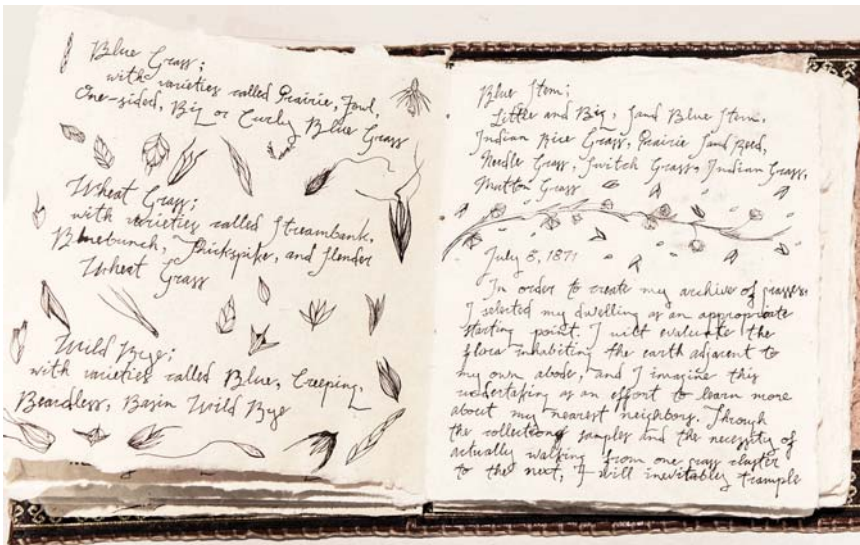 Blue Grass;
with varieties called Prairie, Fowl,
One-sided, Big or Curly Blue Grass
Wheat Grass;
with varieties called Streambank,
Bluebunch, Thickspike, and Slender
Wheat Grass
Wild Rye;
with varieties called Blue, Creeping,
Beardless, Basin Wild Rye
Blue Stem;
Little and Big, Sand Blue Stem,
Indian Rice Grass, Prairie Sand Reed,
Needle Grass, Switch Grass, Indian Grass,
Mutton Grass
July 8, 1871
In order to create my archive of grasses,
I selected my dwelling as an appropriate
starting point. I will evaluate the
flora inhabiting the earth adjacent to
my own abode, and I imagine this
undertaking as an effort to learn more
about my nearest neighbors. Through
the collection of samples and the necessity of
actually walking from one grass cluster
to the next, I will inevitably trample